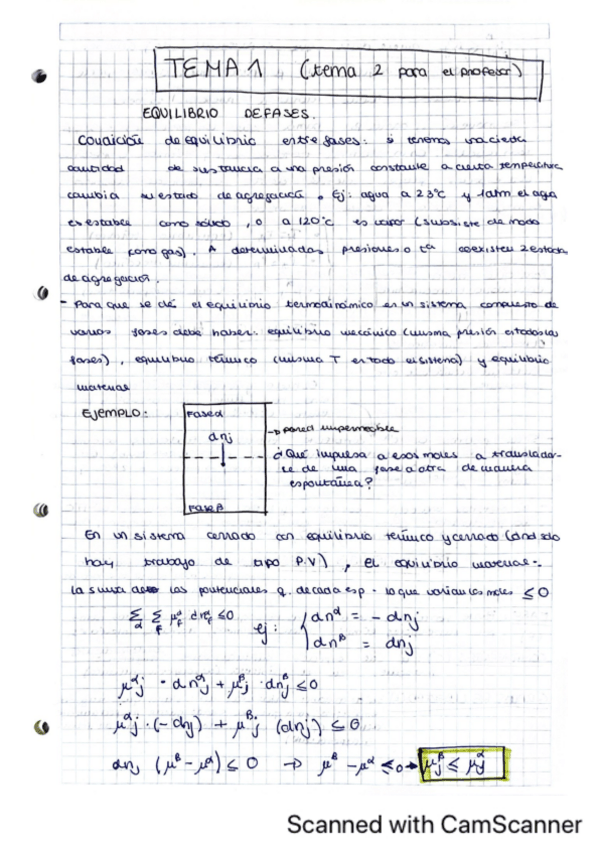 TEMA 1 (tema 2 para el profesor)
EQUILIBRIO DE FASES.
Condición de equilibrio entre fases: si tenemos una cierta
cantidad de sustancia a una presión constante a cierta temperatura
cambia su estado de agregación. Ej: agua a 23°C y 1atm el agua
es estable como , o a 120°C es vapor (subsiste de modo
estable como gas). A determinadas presiones o tª coexisten 2 estados
de agregación.
- Para que se dé el equilibrio termodinámico en un sistema compuesto de
varias fases debe haber: equilibrio mecánico (misma presión en todas las
fases), equilibrio térmico (misma T en todo el sistema) y equilibrio
material
EJEMPLO:
Fase α
→ pared impermeable
dnj
¿Qué impulsa a esos moles a trasladar-
se de una fase a otra de manera
espontánea?
Fase β
En un sistema cerrado con equilibrio térmico y cerrado (donde solo
hay trabajo de tipo P.V), el equilibrio material:
La suma de los potenciales q. de cada esp · lo que varían los moles ≤ 0
Σ Σ μ dn ≤ 0 ej: dn^α = - dnj
dn^β = dnj
μ^α j · dn^α j + μ^β j · dn^β j ≤ 0
μ^α j · (- dnj) + μ^β j (dnj) ≤ 0
dnj (μ^β - μ^α) ≤ 0 → μ^β - μ^α ≤ 0 → μ^β j ≤ μ^α j
Scanned with CamScanner